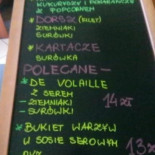 KUKURYDZY I POMARAŃCZY
Z POPCORNEM
* DORSZ (FILET)
ZIEMNIAKI
SURÓWKI
* KARTACZE
SURÓWKA
POLECANE -
* DE VOLAILLE
Z SEREM
- ZIEMNIAKI 14 zł
- SURÓWKI
* BUKIET WARZYW
W SOSIE SEROWYM
13 zł